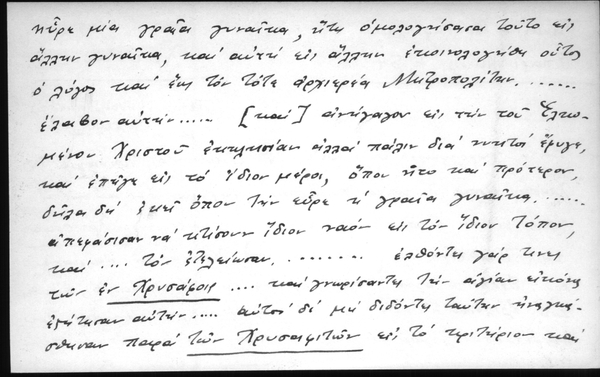 ηὗρε μία γραῖα γυναῖκα, ἥτις ὁμολογήσασα τοῦτο εἰς
ἄλλην γυναῖκα, καί αὐτή εἰς ἄλλην ἐκοινολογήθη οὗτος
ὁ λόγος καί ἕως τόν τότε ἀρχιερέα Μητροπολίτην.......
ἔλαβον αὐτήν..... [καί] ἀνήγαγον εἰς τήν τοῦ Ἑλκο-
μένου Χριστοῦ ἐκκλησίαν ἀλλά πάλιν διά νυκτός ἔφυγε,
καί ἐπῆγε εἰς τό ἴδιον μέρος, ὅπου ἦτο καί πρότερον,
δῆλα δή ἐκεῖ ὅπου τήν εὗρε ἡ γραῖα γυναῖκα.......
ἀπεφάσισαν νά κτίσουν ἴδιον ναόν εἰς τόν ἴδιον τόπον,
καί .... τόν ἐτελείωσαν......... ἐλθόντες γάρ τινες
τῶν ἐν Χρυσάφοις .... καί γνωρίσαντες τήν ἁγίαν εἰκόνα
ἐζήτησαν αὐτήν..... αὐτοί δέ μή διδόντες ταύτην ἠναγκά-
σθησαν παρά τῶν Χρυσαφιτῶν εἰς τό κριτήριον καί